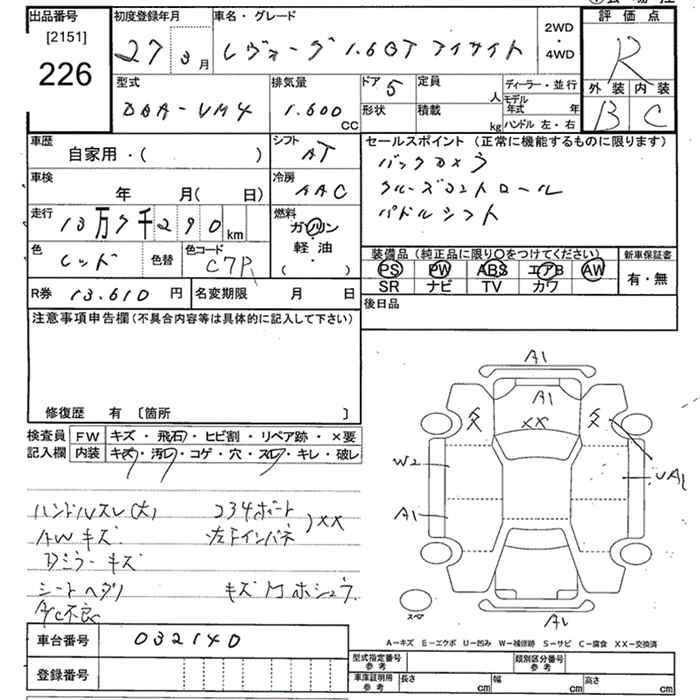 出品番号 初度登録年月 車名・グレード 評価点
[2151]
226
27 3月 レヴォーグ 1.6GT アイサイト 2WD・4WD R
型式 排気量 ドア 5 定員 人 ディーラー・並行 外装 内装
DBA-VM4 1.600 CC 形状 積載 kg モデル年式 年 B C
ハンドル 左・右
車歴 シフト セールスポイント (正常に機能するものに限ります)
自家用・( ) AT バックカメラ
車検 冷房 クルーズコントロール
年 月( 日) AAC パドルシフト
走行 13万7千290km 燃料 ガソリン・軽油 ( )
色 レッド 色替 色コード C7P
装備品 (純正品に限り○をつけてください) 新車保証書
PS PW ABS エアB AW 有・無
SR ナビ TV カワ
R券 13.610円 名変期限 月 日 後日品
注意事項申告欄 (不具合内容等は具体的に記入して下さい)
修復歴 有 [箇所 ]
検査員記入欄 FW キズ・飛石・ヒビ割・リペア跡・×要
内装 キズ・汚レ・コゲ・穴・スレ・キレ・破レ
ハンドルスレ(大) コア4サポート
AWキズ 左下インパネ ××
Dミラーキズ
シートヘタリ キズ ホシュウ
A/C不良
A1
A1
××
W2
A1
UA1
A1
スペア
A-キズ E-エクボ U-凹み W-補修跡 S-サビ C-腐食 XX-交換済
車台番号 032140
登録番号
型式指定番号 参考 類別区分番号 参考
車庫証明用 参考 長さ cm 幅 cm 高さ cm